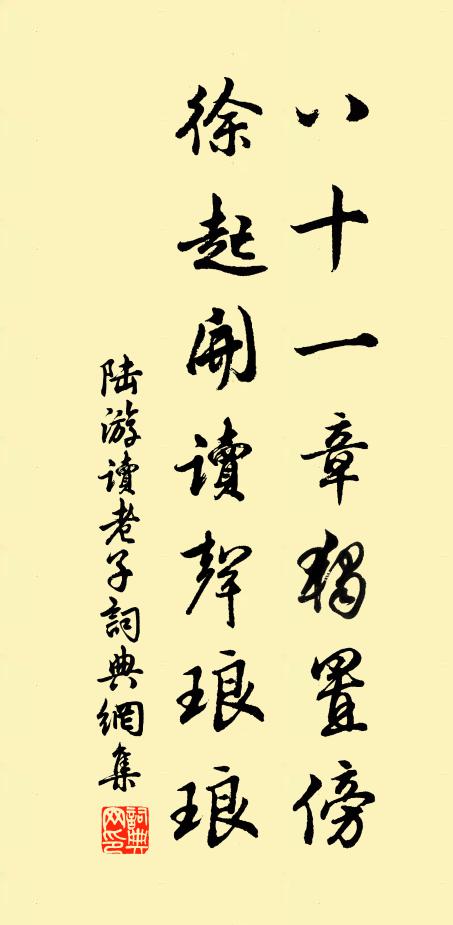 八十一章獨置傍
徐起開讀聲琅琅
陸游讀老子詞典網集
詞典网印